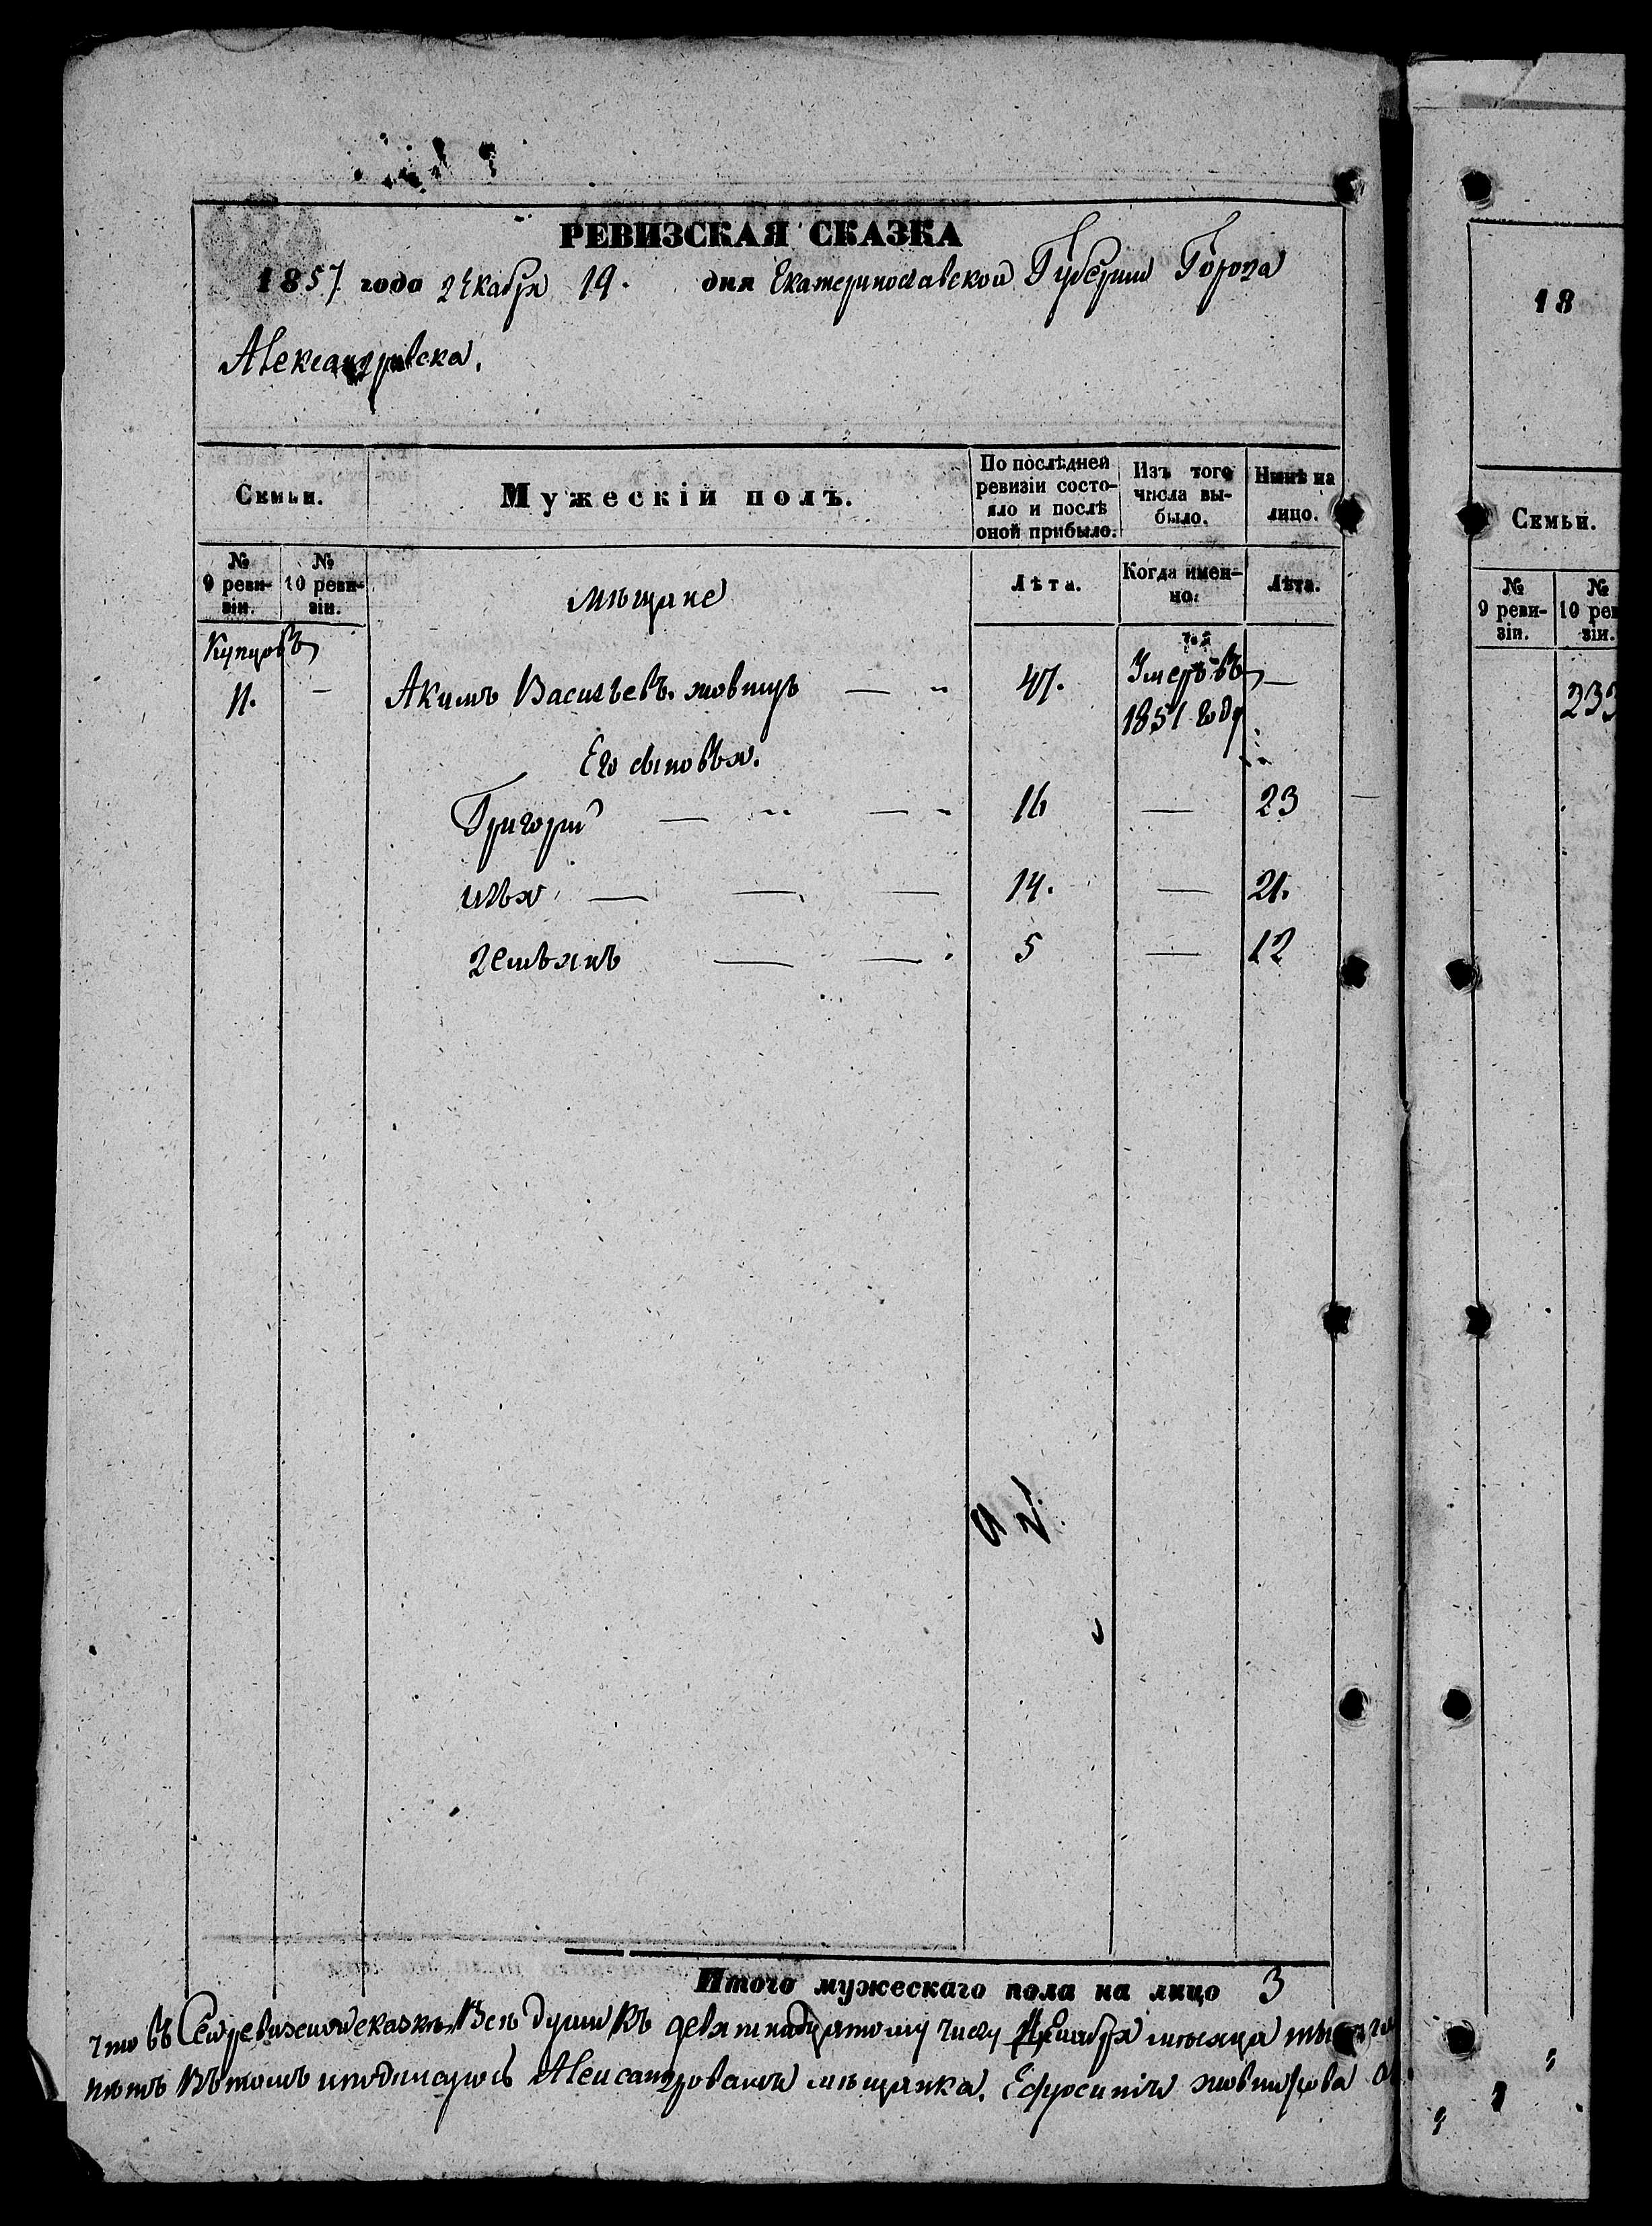 РЕВИЗСКАЯ СКАЗКА
1857 года декабря 19. дня Екатеринославской Губернии Города
Александровска.
Семьи.
Мужескій полъ.
По послѣдней ревизіи состо-
яло и послѣ оной прибыло.
Изъ того числа вы-
было.
Нынѣ на лицо.
№ 9 реви-
зіи.
№ 10 реви-
зіи.
мѣщане
Лѣта.
Когда имен-
но.
Лѣта.
Купцовъ
11. — Акимъ Васильевъ. — 47. Умеръ въ —
1851 году
Его сыновья.
Григорій — — 16 — 23
Илья — — — 14. — 21.
Демьянъ — — 5 — 12
Итого мужескаго пола на лицо 3
что въ сей ревизской сказкѣ Всѣ души Къ девятнадцатому числу Декабря мѣсяца
Въ томъ и подписуюсь Александровская мѣщанка. Ефросинія
18
Семьи.
№ 9 реви-
зіи.
№ 10 рев
зіи.
233